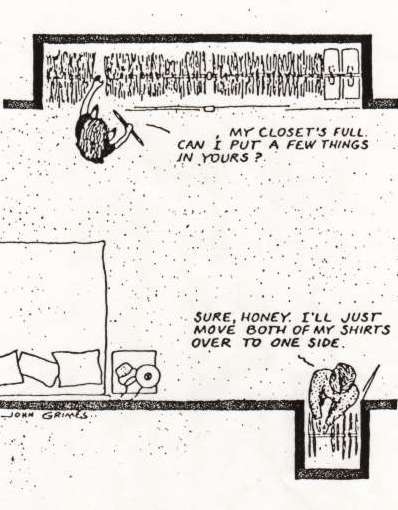 MY CLOSET'S FULL.
CAN I PUT A FEW THINGS
IN YOURS?
SURE, HONEY. I'LL JUST
MOVE BOTH OF MY SHIRTS
OVER TO ONE SIDE.
JOHN GRIMES